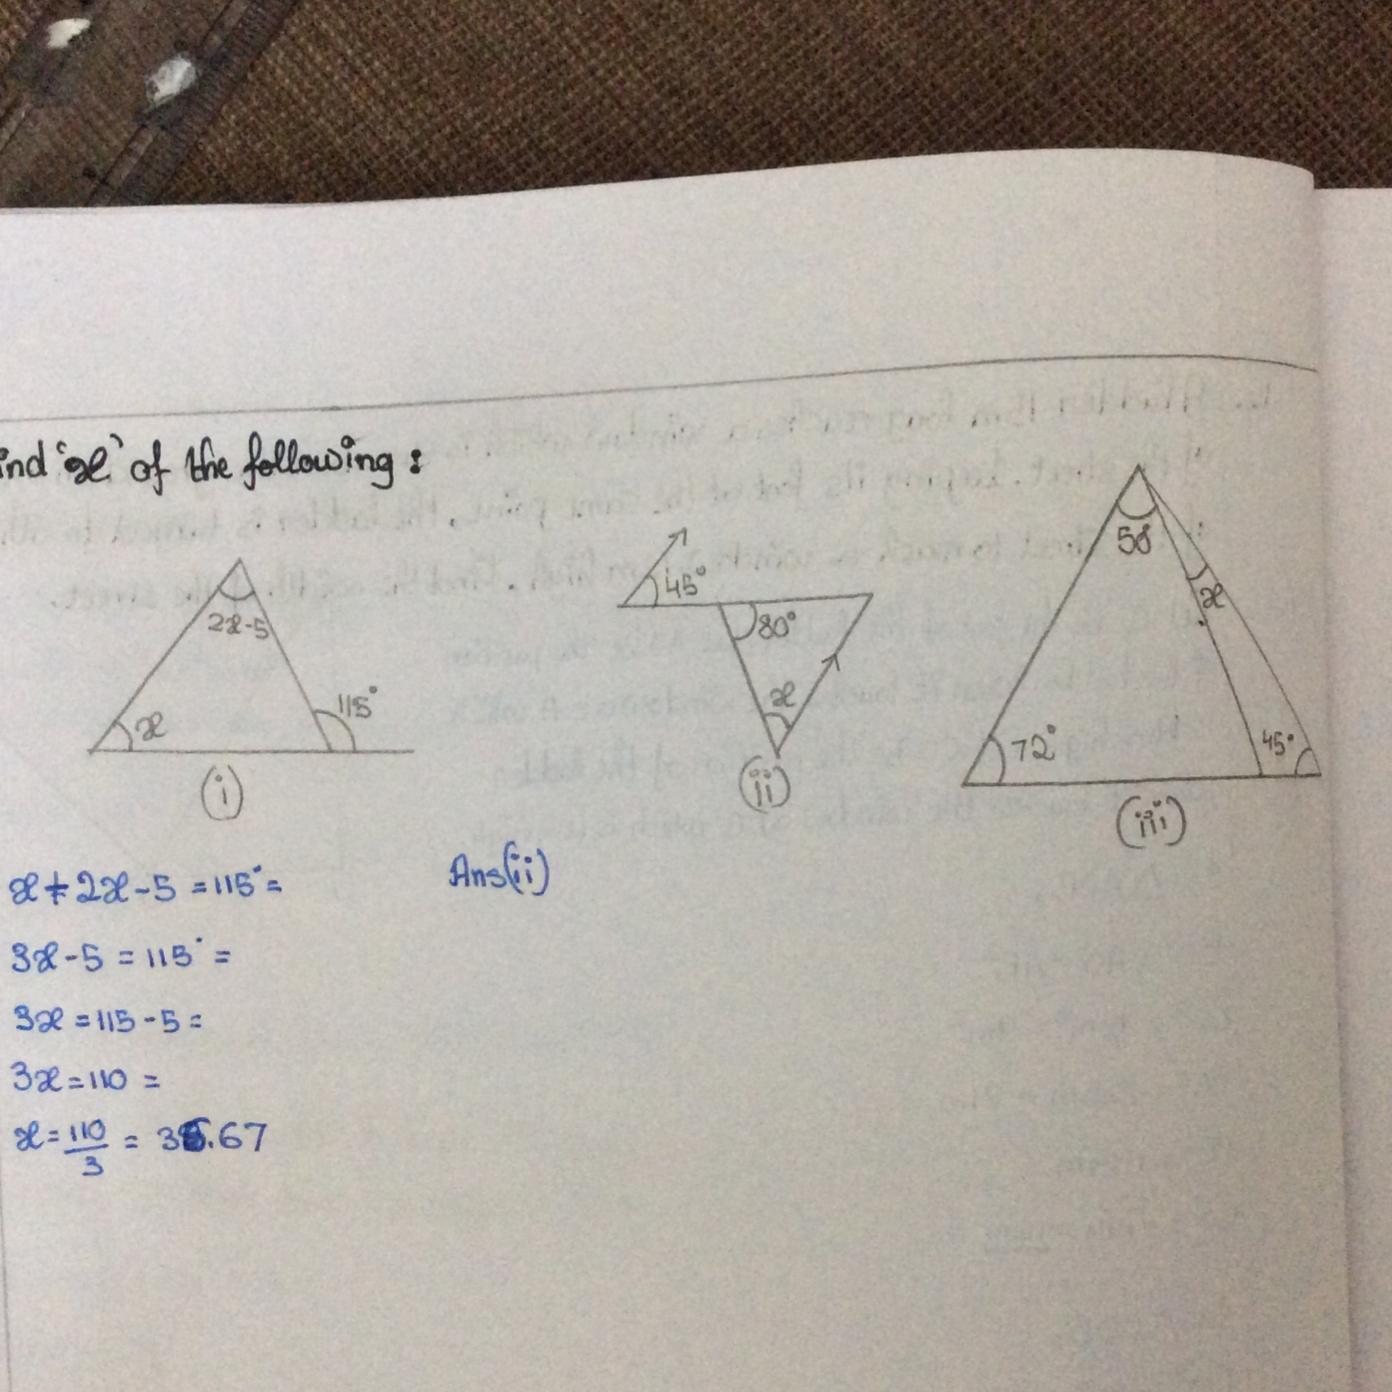 ind 'x' of the following :
2x-5
x
115°
(i)
45°
80°
x
(ii)
50°
x
72°
45°
(iii)
x+2x-5 = 115° =
3x-5 = 115° =
3x = 115-5 =
3x = 110 =
x = 110/3 =
Ans(ii)